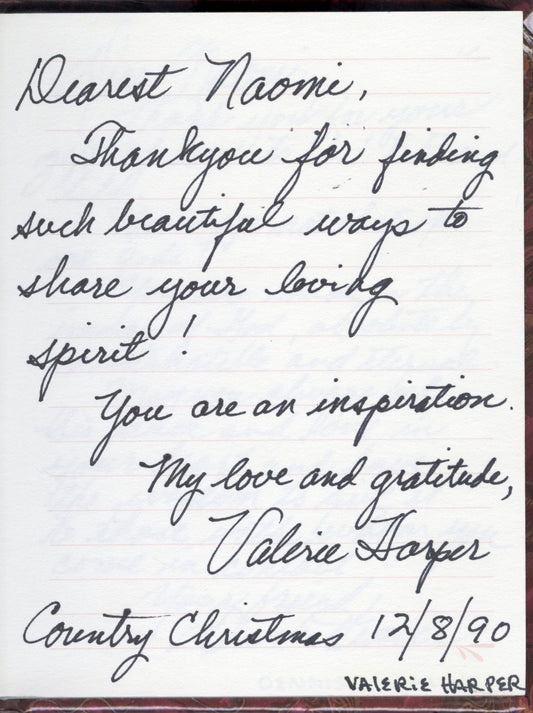 Dearest Naomi,
Thankyou for finding
such beautiful ways to
share your loving
spirit!
You are an inspiration.
My love and gratitude,
Valerie Harper
Country Christmas 12/8/90
VALERIE HARPER